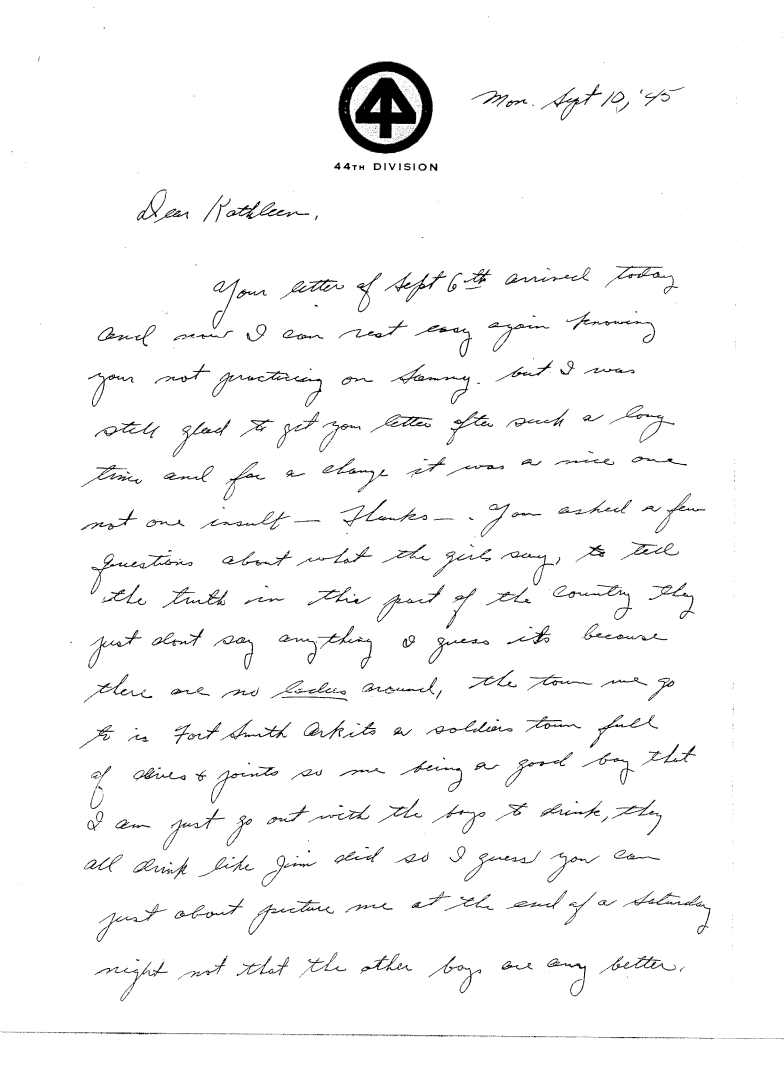 Mon. Sept 10, '45
44TH DIVISION
Dear Kathleen,
Your letter of Sept 6th arrived today
and now I can rest easy again knowing
your not practicing on Sammy. but I was
still glad to get your letter after such a long
time and for a change it was a nice one
not one insult — Thanks —. You asked a few
questions about what the girls say, to tell
the truth in this part of the country they
just dont say anything I guess its because
there are no ladies around, the town we go
to is Fort Smith Ark its a soldiers town full
of dives & joints so me being a good boy that
I am just go out with the boys to drink, they
all drink like Jim did so I guess you can
just about picture me at the end of a Saturday
night not that the other boys are any better.